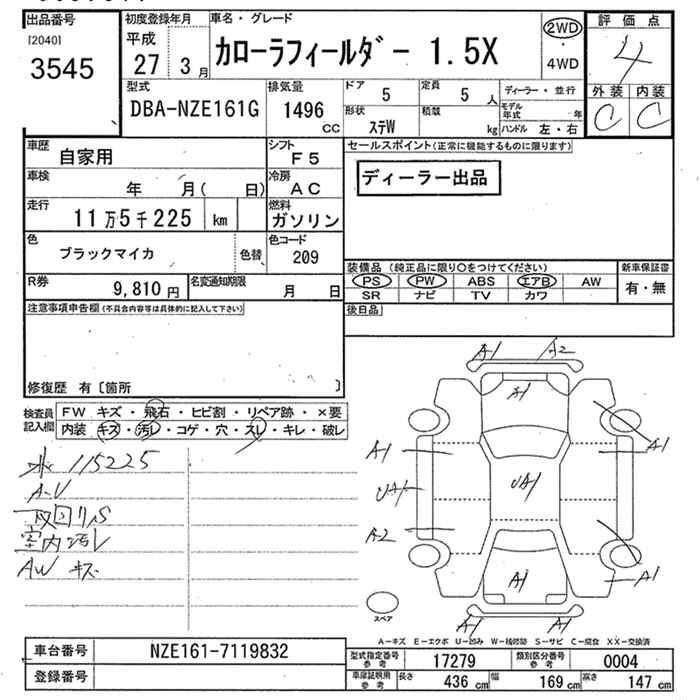 出品番号
[2040]
3545
初度登録年月
平成
27 3月
車名・グレード
カローラフィールダー 1.5X
2WD
・
4WD
評価点
4
外装 内装
C C
型式
DBA-NZE161G
排気量
1496
CC
ドア
5
定員
5 人
形状
ステW
積載
kg
ディーラー・並行
モデル年式 年
ハンドル 左・右
車歴
自家用
シフト
F5
車検
年 月( 日)
冷房
AC
走行
11万5千225 km
燃料
ガソリン
色
ブラックマイカ
色替
色コード
209
R券
9,810円
名変通知期限
月 日
セールスポイント(正常に機能するものに限ります)
ディーラー出品
装備品 (純正品に限り〇をつけてください)
PS PW ABS エアB AW
SR ナビ TV カワ
新車保証書
有・無
後日品
注意事項申告欄(不具合内容等は具体的に記入して下さい)
修復歴 有〔箇所 〕
検査員記入欄
FW キズ・飛石・ヒビ割・リペア跡・×要
内装 キズ・汚レ・コゲ・穴・スレ・キレ・破レ
115225
A-V
室内汚レ
AW キズ
A1 A2
A1
A1 A1
UA1 UA1
A2
A1 A1
A1 A1
スペア
A-キズ E-エクボ U-凹み W-補修跡 S-サビ C-腐食 XX-交換済
車台番号
NZE161-7119832
登録番号
型式指定番号
参考
17279
類別区分番号
参考
0004
車庫証明用
参考
長さ 436 cm 幅 169 cm 高さ 147 cm